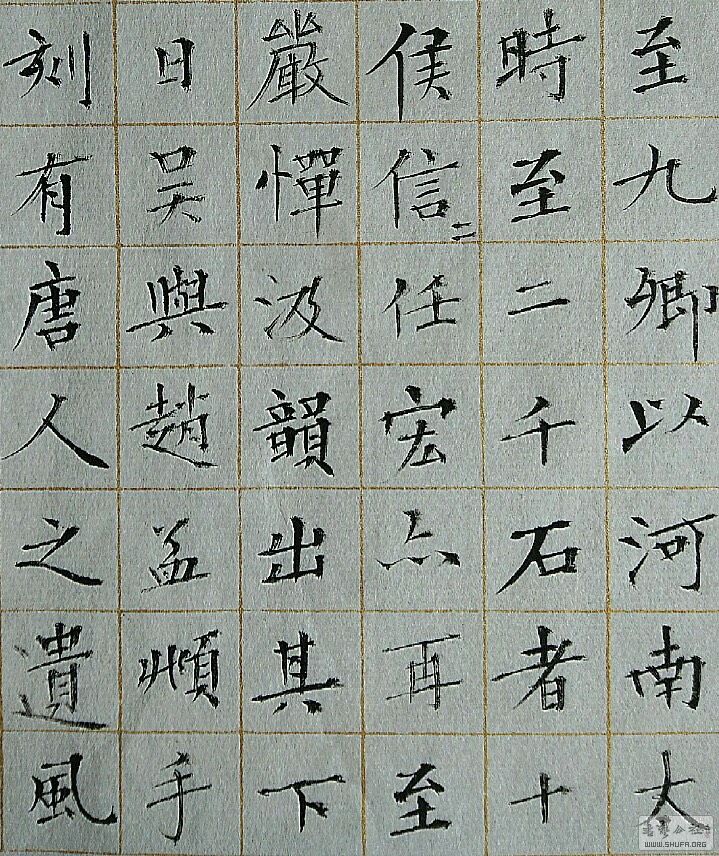 至九卿以河南大
時至二千石者十
侯信二任宏亦再至
嚴憚汲韻出其下
日吴興趙孟頫手
刻有唐人之遺風
WWW.SHUFA.ORG